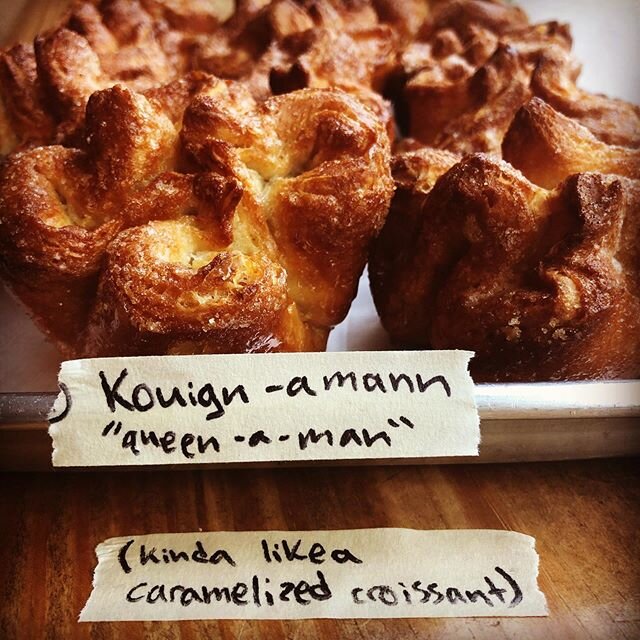 Kouign-amann
"queen-a-man"
(kinda like a
caramelized croissant)